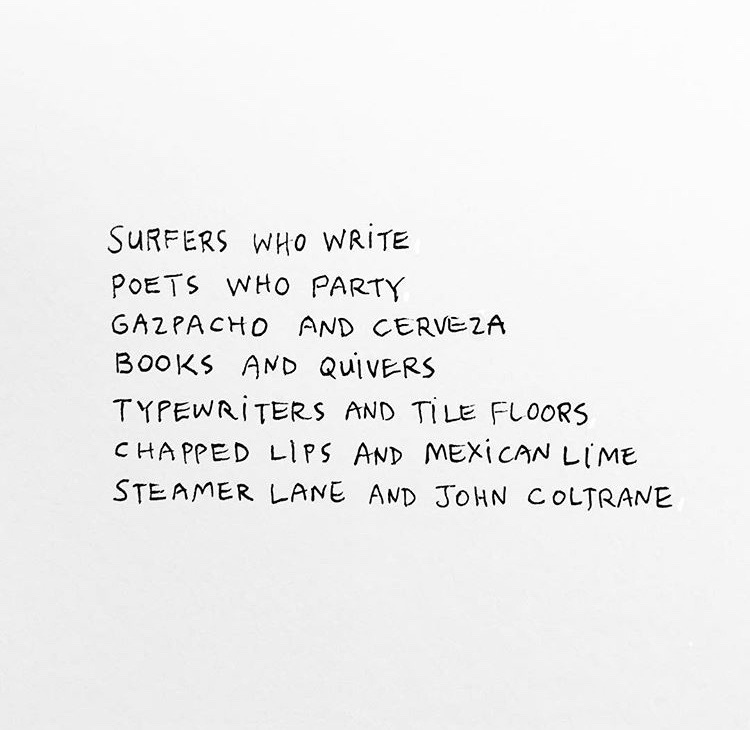 SURFERS WHO WRITE
POETS WHO PARTY
GAZPACHO AND CERVEZA
BOOKS AND QUIVERS
TYPEWRITERS AND TILE FLOORS
CHAPPED LIPS AND MEXICAN LIME
STEAMER LANE AND JOHN COLTRANE